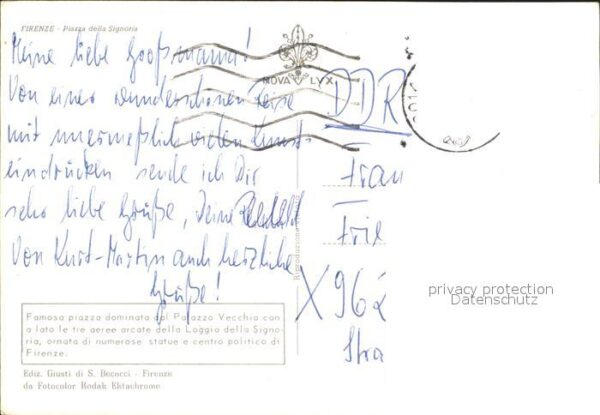 FIRENZE - Piazza della Signoria
Meine liebe Großmama!
Von einer wunderschönen Reise
mit unermeßlich vielen Kunst-
eindrücken sende ich Dir
sehr liebe Grüße, Deine
Von Kurt-Martin auch herzliche
Grüße!
NOVA LUX
DDR
Frau
X 962
Stra
privacy protection
Datenschutz
Famosa piazza dominata dal Palazzo Vecchio con
a lato le tre aeree arcate della Loggia della Signo-
ria, ornata di numerose statue e centro politico di
Firenze.
Ediz. Giusti di S. Becocci - Firenze
da Fotocolor Kodak Ektachrome